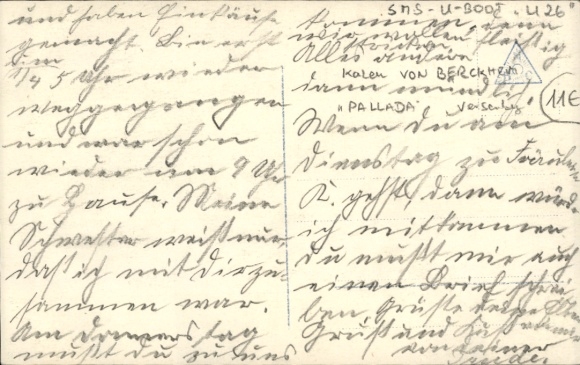 und haben Einkäufe
gemacht. Bin erst
um
1/4 5 Uhr wieder
weggegangen
und war schon
wieder um 9 Uhr
zu Hause. Meine
Schwester weiß nur,
daß ich mit dir zu-
sammen war.
Am Donnerstag
mußt du zu uns
kommen, denn
wir wollen fleißig
stricken.
Alles andere
dann mündlich
Wenn du am
Dienstag zu Fräulein
K. gehst, dann würde
ich mitkommen
du mußt mir auch
einen Brief schrei-
ben, Grüße deine
Gruß und Kuß
von deiner
SMS-U-BOOT "U26"
VON BERCKHEIM
"PALLADA" versenkt
11€